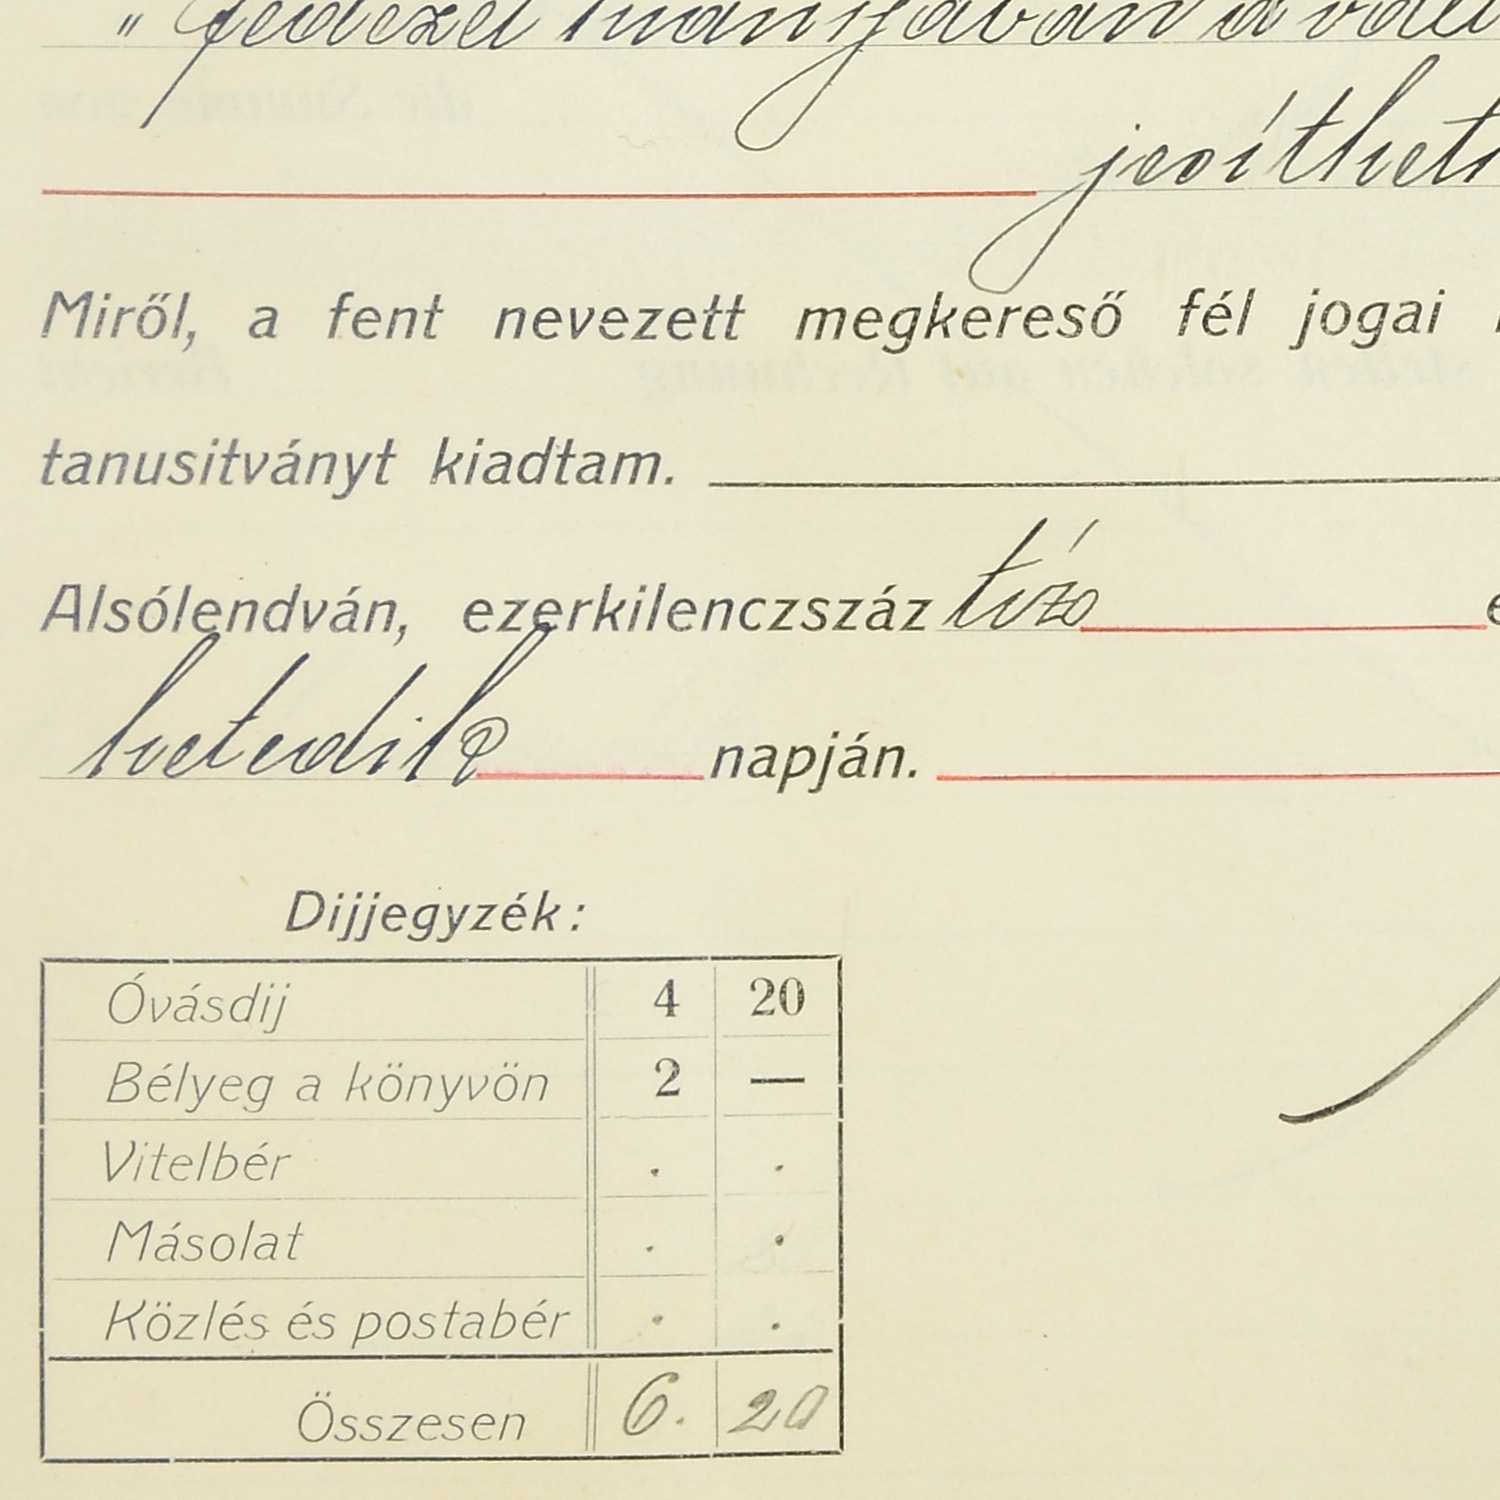 " fedezet hiányában a vált
jesíthet
Miről, a fent nevezett megkereső fél jogai
tanusitványt kiadtam.
Alsólendván, ezerkilenczszáz tíz
hetedik napján.
Dijjegyzék:
Óvásdij 4 20
Bélyeg a könyvön 2 —
Vitelbér . .
Másolat . .
Közlés és postabér . .
Összesen 6. 20